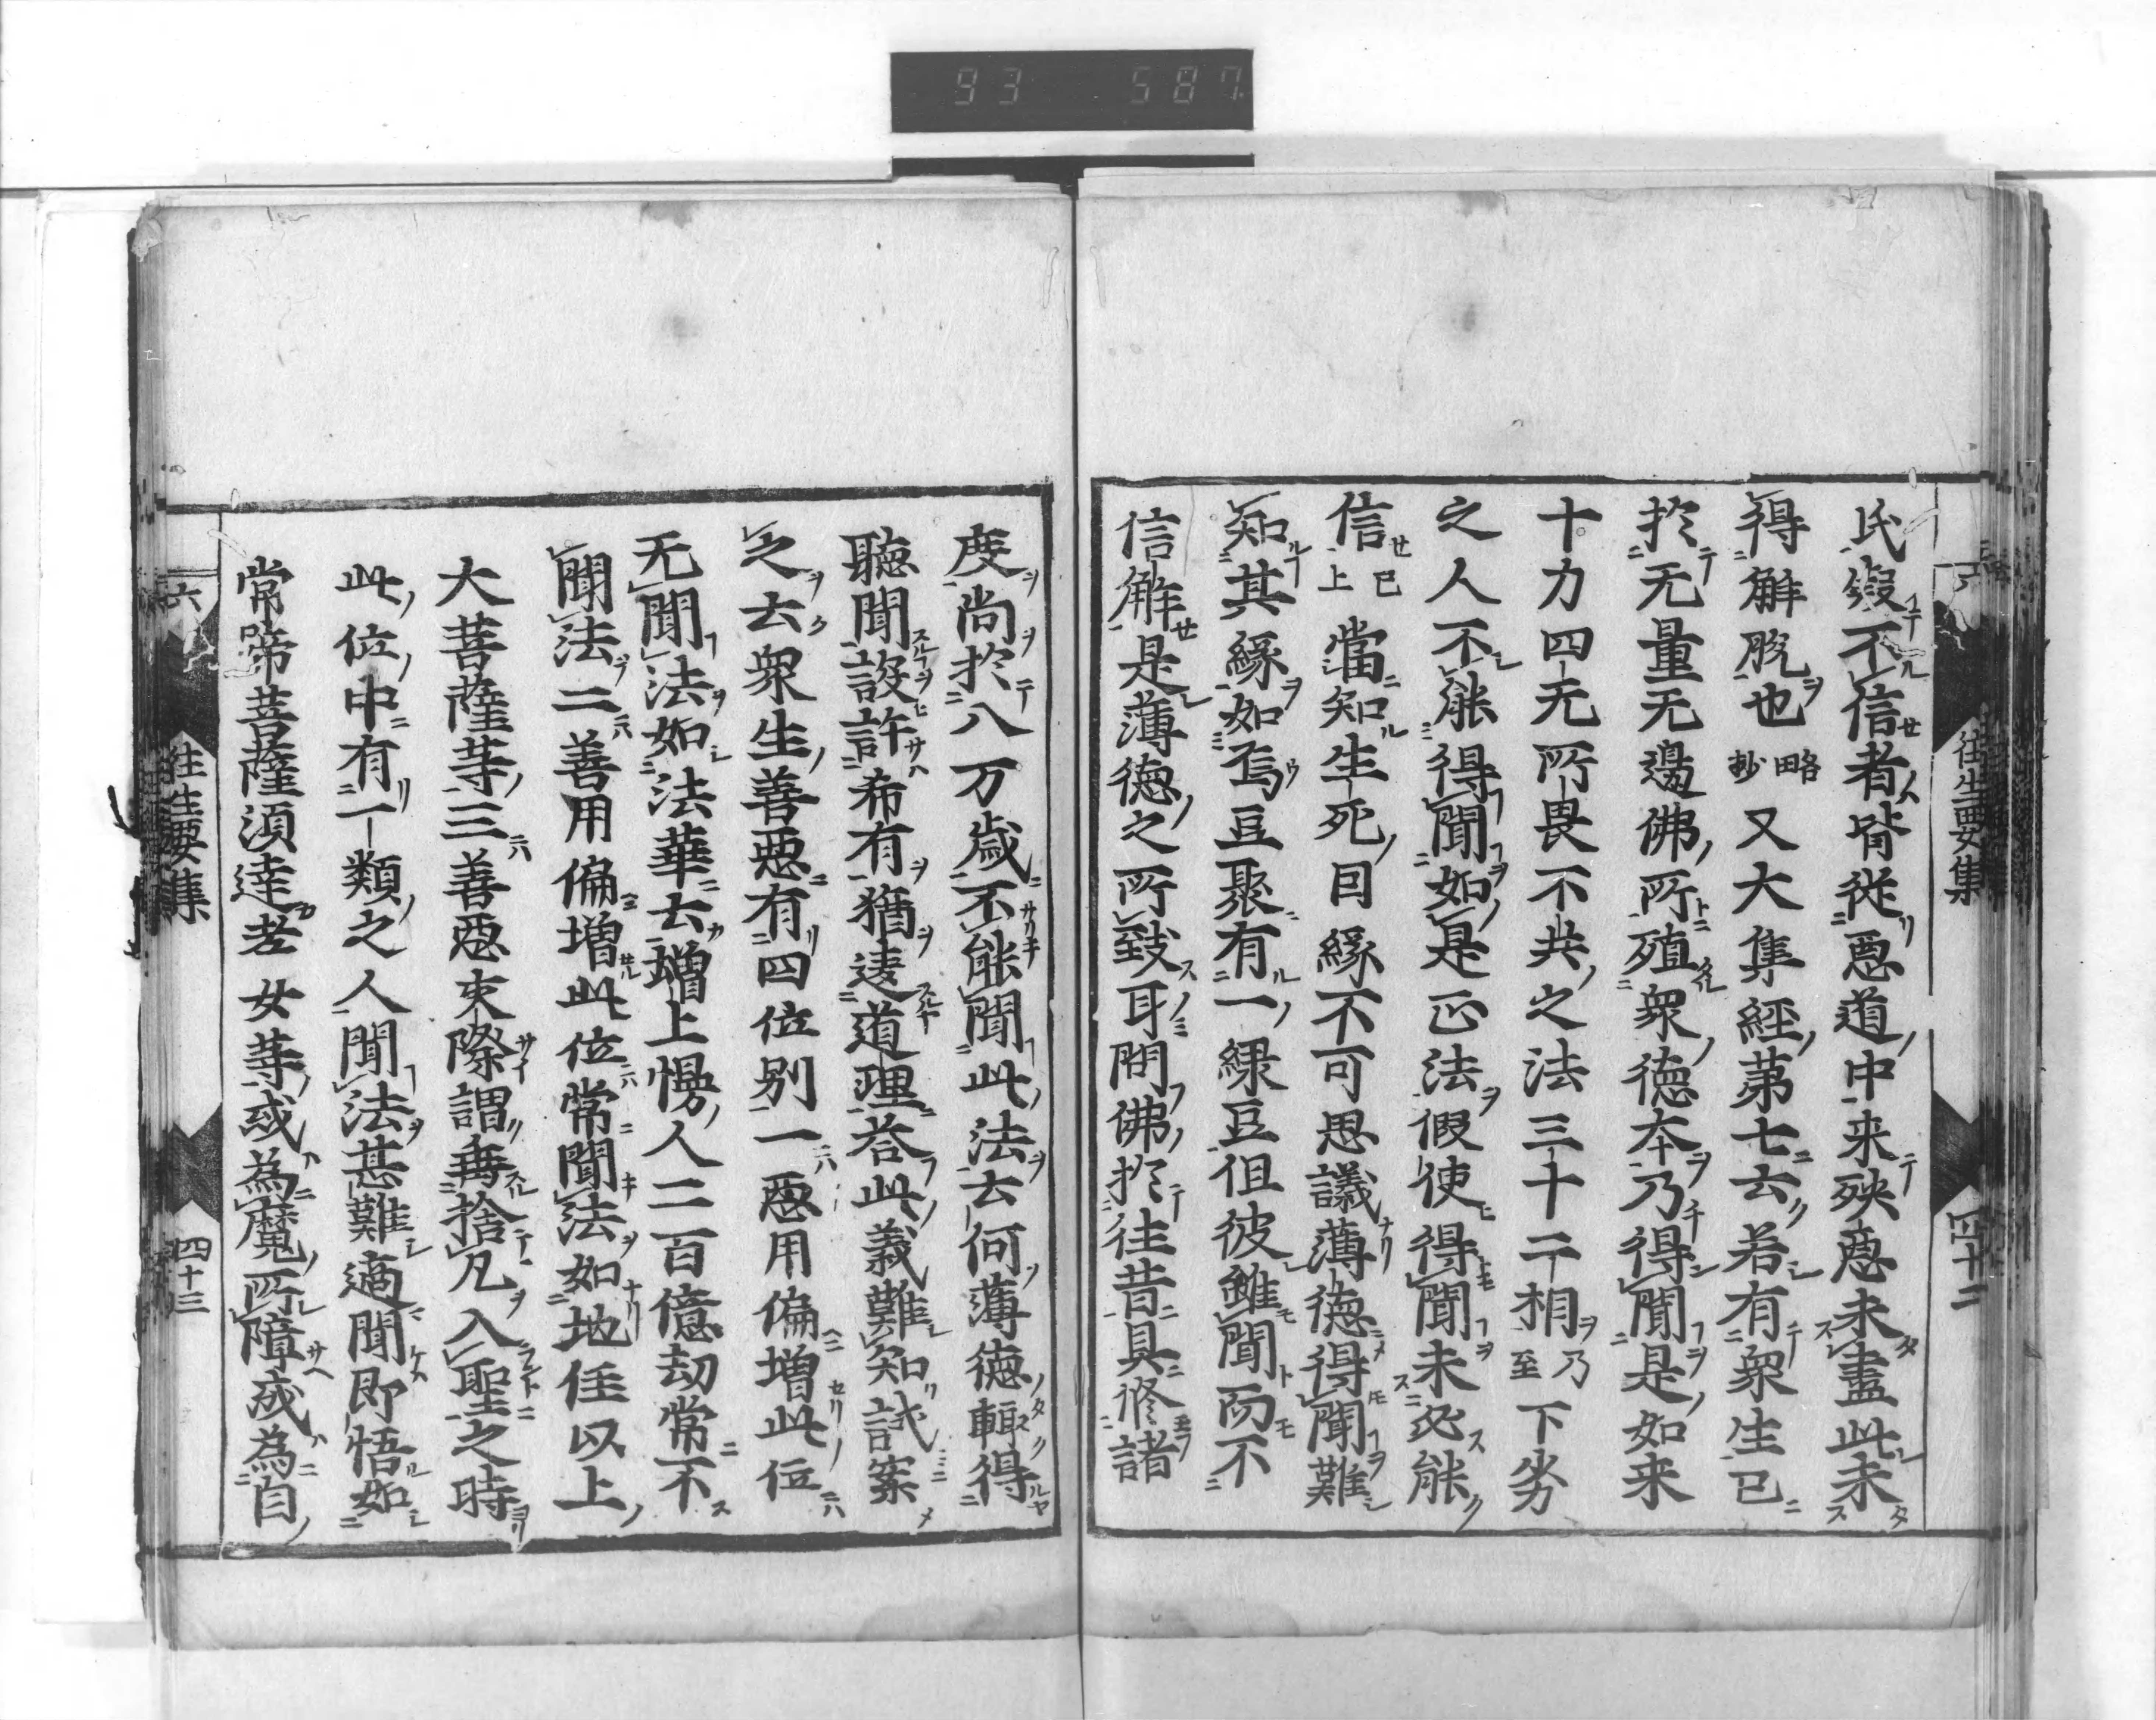 93 587
往生要集
四十二
民疑不信者皆從惡道中来殃惡未盡此未
得解脱也略抄又大集經第七云若有衆生已
於无量无邊佛所殖衆德本乃得聞是如来
十力四无所畏不共之法三十二相乃至下劣
之人不能得聞如是正法假使得聞未必能
信已上當知生死因緣不可思議薄德得聞難
知其緣如烏豆聚有一緑豆但彼雖聞而不
信解是薄德之所致耳問佛於往昔具修諸
度尚於八万歳不能聞此法云何薄德輙得
聽聞設許希有猶違道理荅此義難知試案
之云衆生善惡有四位別一惡用偏増此位
无聞法如法華云増上慢人二百億劫常不
聞法二善用偏増此位常聞法如地住以上
大菩薩等三善惡交際謂垂捨凡入聖之時
此位中有一類之人聞法甚難適聞即悟如
常啼菩薩須達老女等或為魔所障或為自
往生要集
四十三